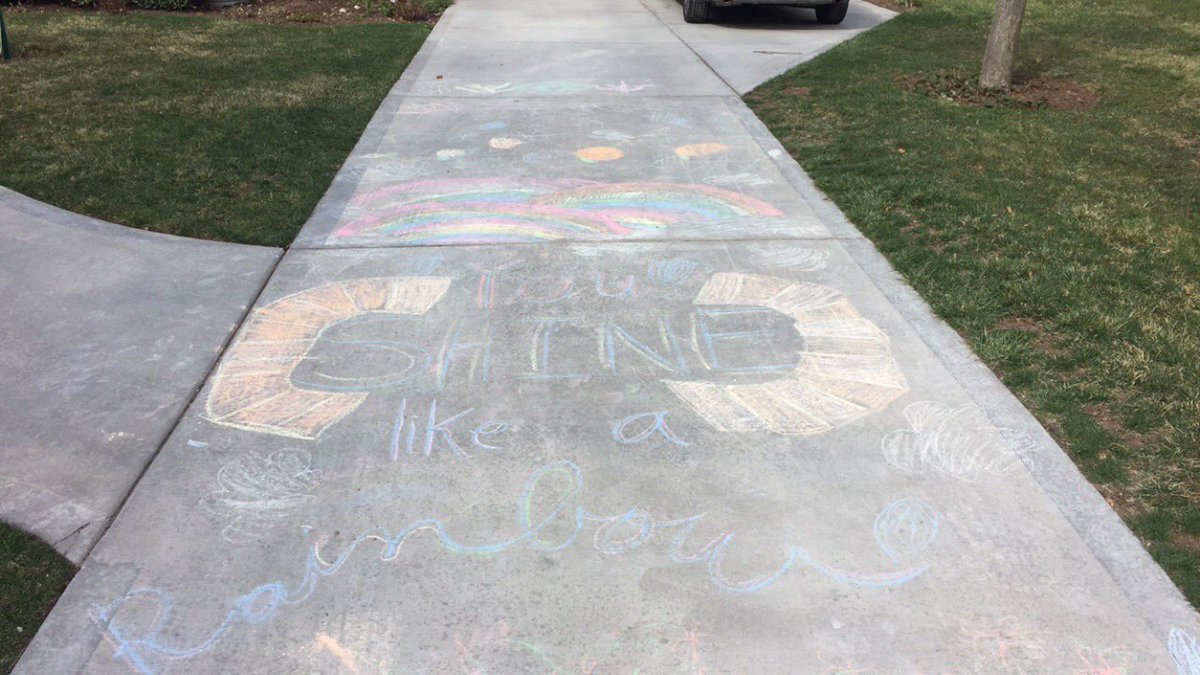 You
ShINE
like a
Rainbow